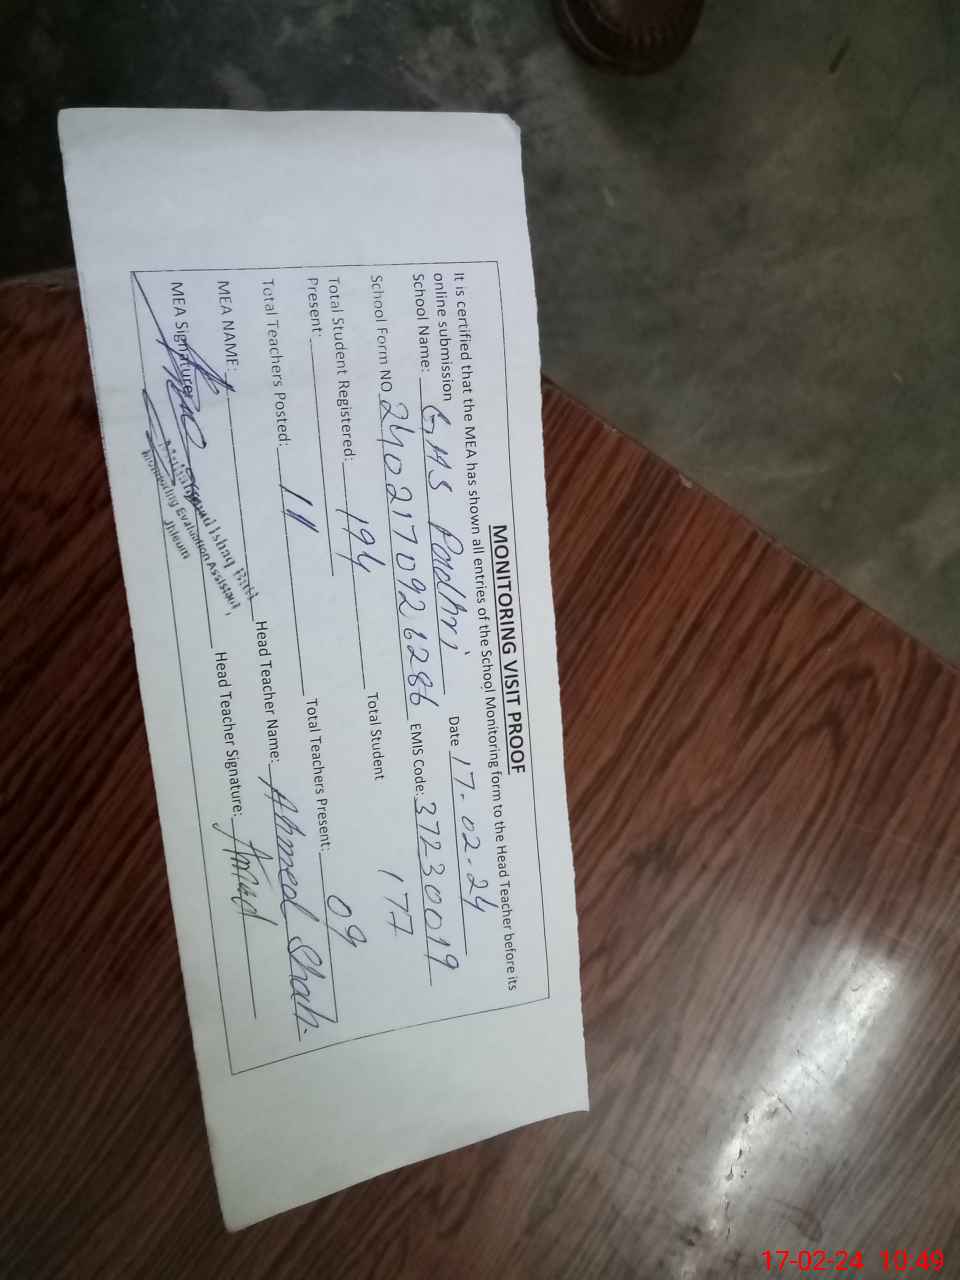 MONITORING VISIT PROOF
It is certified that the MEA has shown all entries of the School Monitoring form to the Head Teacher before its
online submission Date 17-02-24
School Name: GHS Padhri
School Form NO 2402170926286 EMIS Code: 37230019
Total Student Registered: 194 Total Student 177
Present:
Total Teachers Posted: 11 Total Teachers Present: 09
MEA NAME: Head Teacher Name: Ahmed Shah.
MEA Signature: Head Teacher Signature:
Ishaq
Monitoring Evaluation Assistant,
Jhleum
17-02-24 10:49